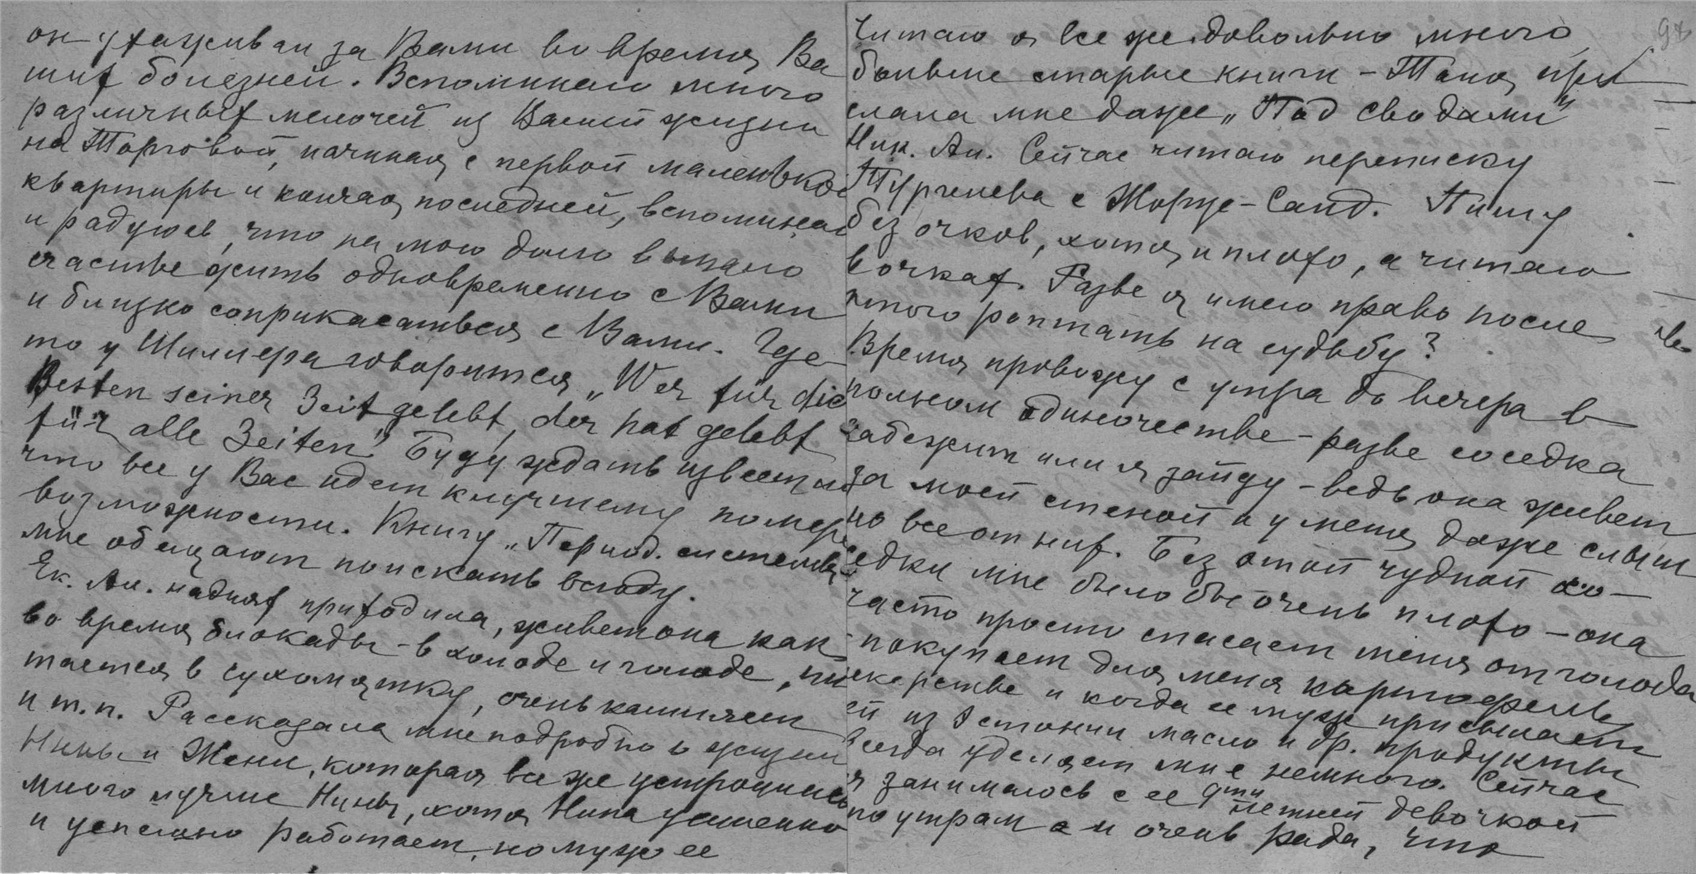 он ухаживал за Вами во время Ва
ших болезней. Вспоминаю много
различных мелочей из Вашей жизни
на Торговой, начиная с первой маленькой
квартиры и кончая последней, вспоминаю
и радуюсь, что на мою долю выпало
счастье жить одновременно с Вами
и близко соприкасаться с Вами. Где-
то у Шиллера говорится „Wer für die
Besten seiner Zeit gelebt, der hat gelebt
für alle Zeiten". Буду ждать известий
что все у Вас идет к лучшему по мере
возможности. Книгу „Период. системы
мне обещают поискать всюду.
Ек. Ан. на днях приходила, живет она как
во время блокады - в холоде и голоде, пи
тается в сухомятку, очень кашляет
и т.п. Рассказала мне подробно о жизни
Нины и Жени, которая все же устроилась
много лучше Нины, хотя Нина усиленно
и успешно работает, но муж ее
Читаю я все же довольно много
больше старые книги - Таня при
слала мне даже „Под сводами"
Ник. Ан. Сейчас читаю переписку
Тургенева с Жорж-Санд. Пишу
без очков, хотя и плохо, а читаю
в очках. Разве я имею право после
этого роптать на судьбу?
Время провожу с утра до вечера в
полном одиночестве - разве соседка
забежит или я зайду - ведь она живет
за моей стеной и у меня даже слыш
но все от них. Без этой чудной со-
седки мне было бы очень плохо - она
часто просто спасает меня от голода
покупает для меня картофель
лекарства и когда ее муж присылает
ей из Эстонии масло и др. продукты
всегда уделяет мне немного. Сейчас
я занимаюсь с ее 9ти летней девочкой
по утрам и очень рада, что